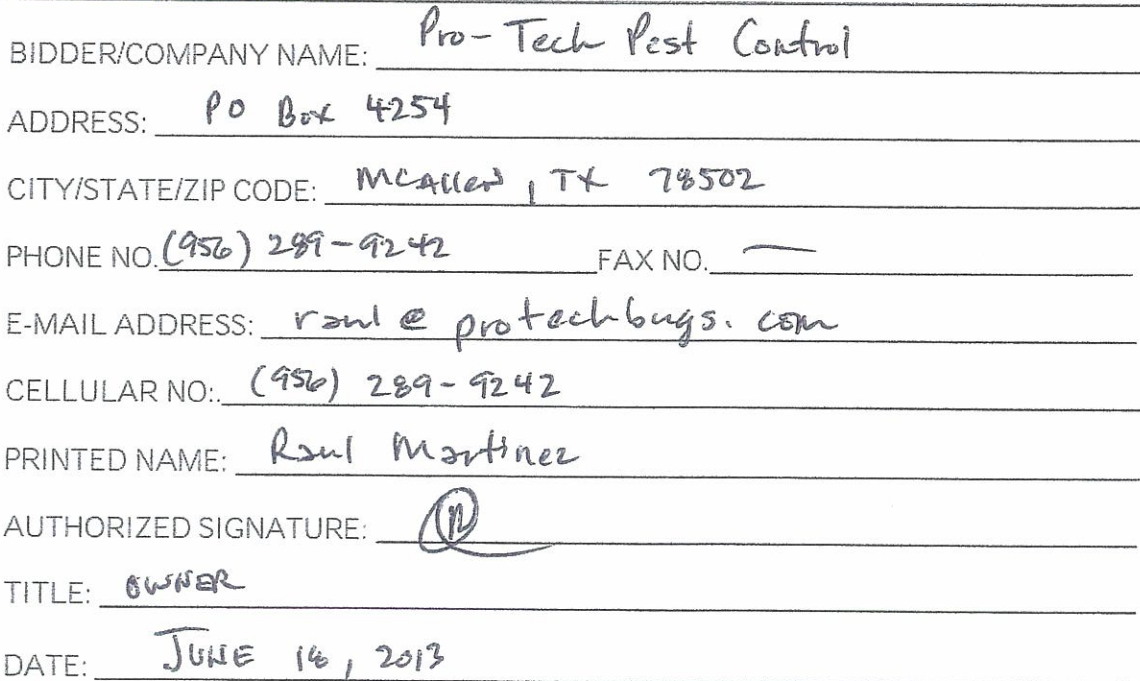 BIDDER/COMPANY NAME: Pro-Tech Pest Control
ADDRESS: PO Box 4254
CITY/STATE/ZIP CODE: McAllen, TX 78502
PHONE NO. (956) 289-9242 FAX NO. —
E-MAIL ADDRESS: raul@protechbugs.com
CELLULAR NO:. (956) 289-9242
PRINTED NAME: Raul Martinez
AUTHORIZED SIGNATURE:
TITLE: OWNER
DATE: JUNE , 2013